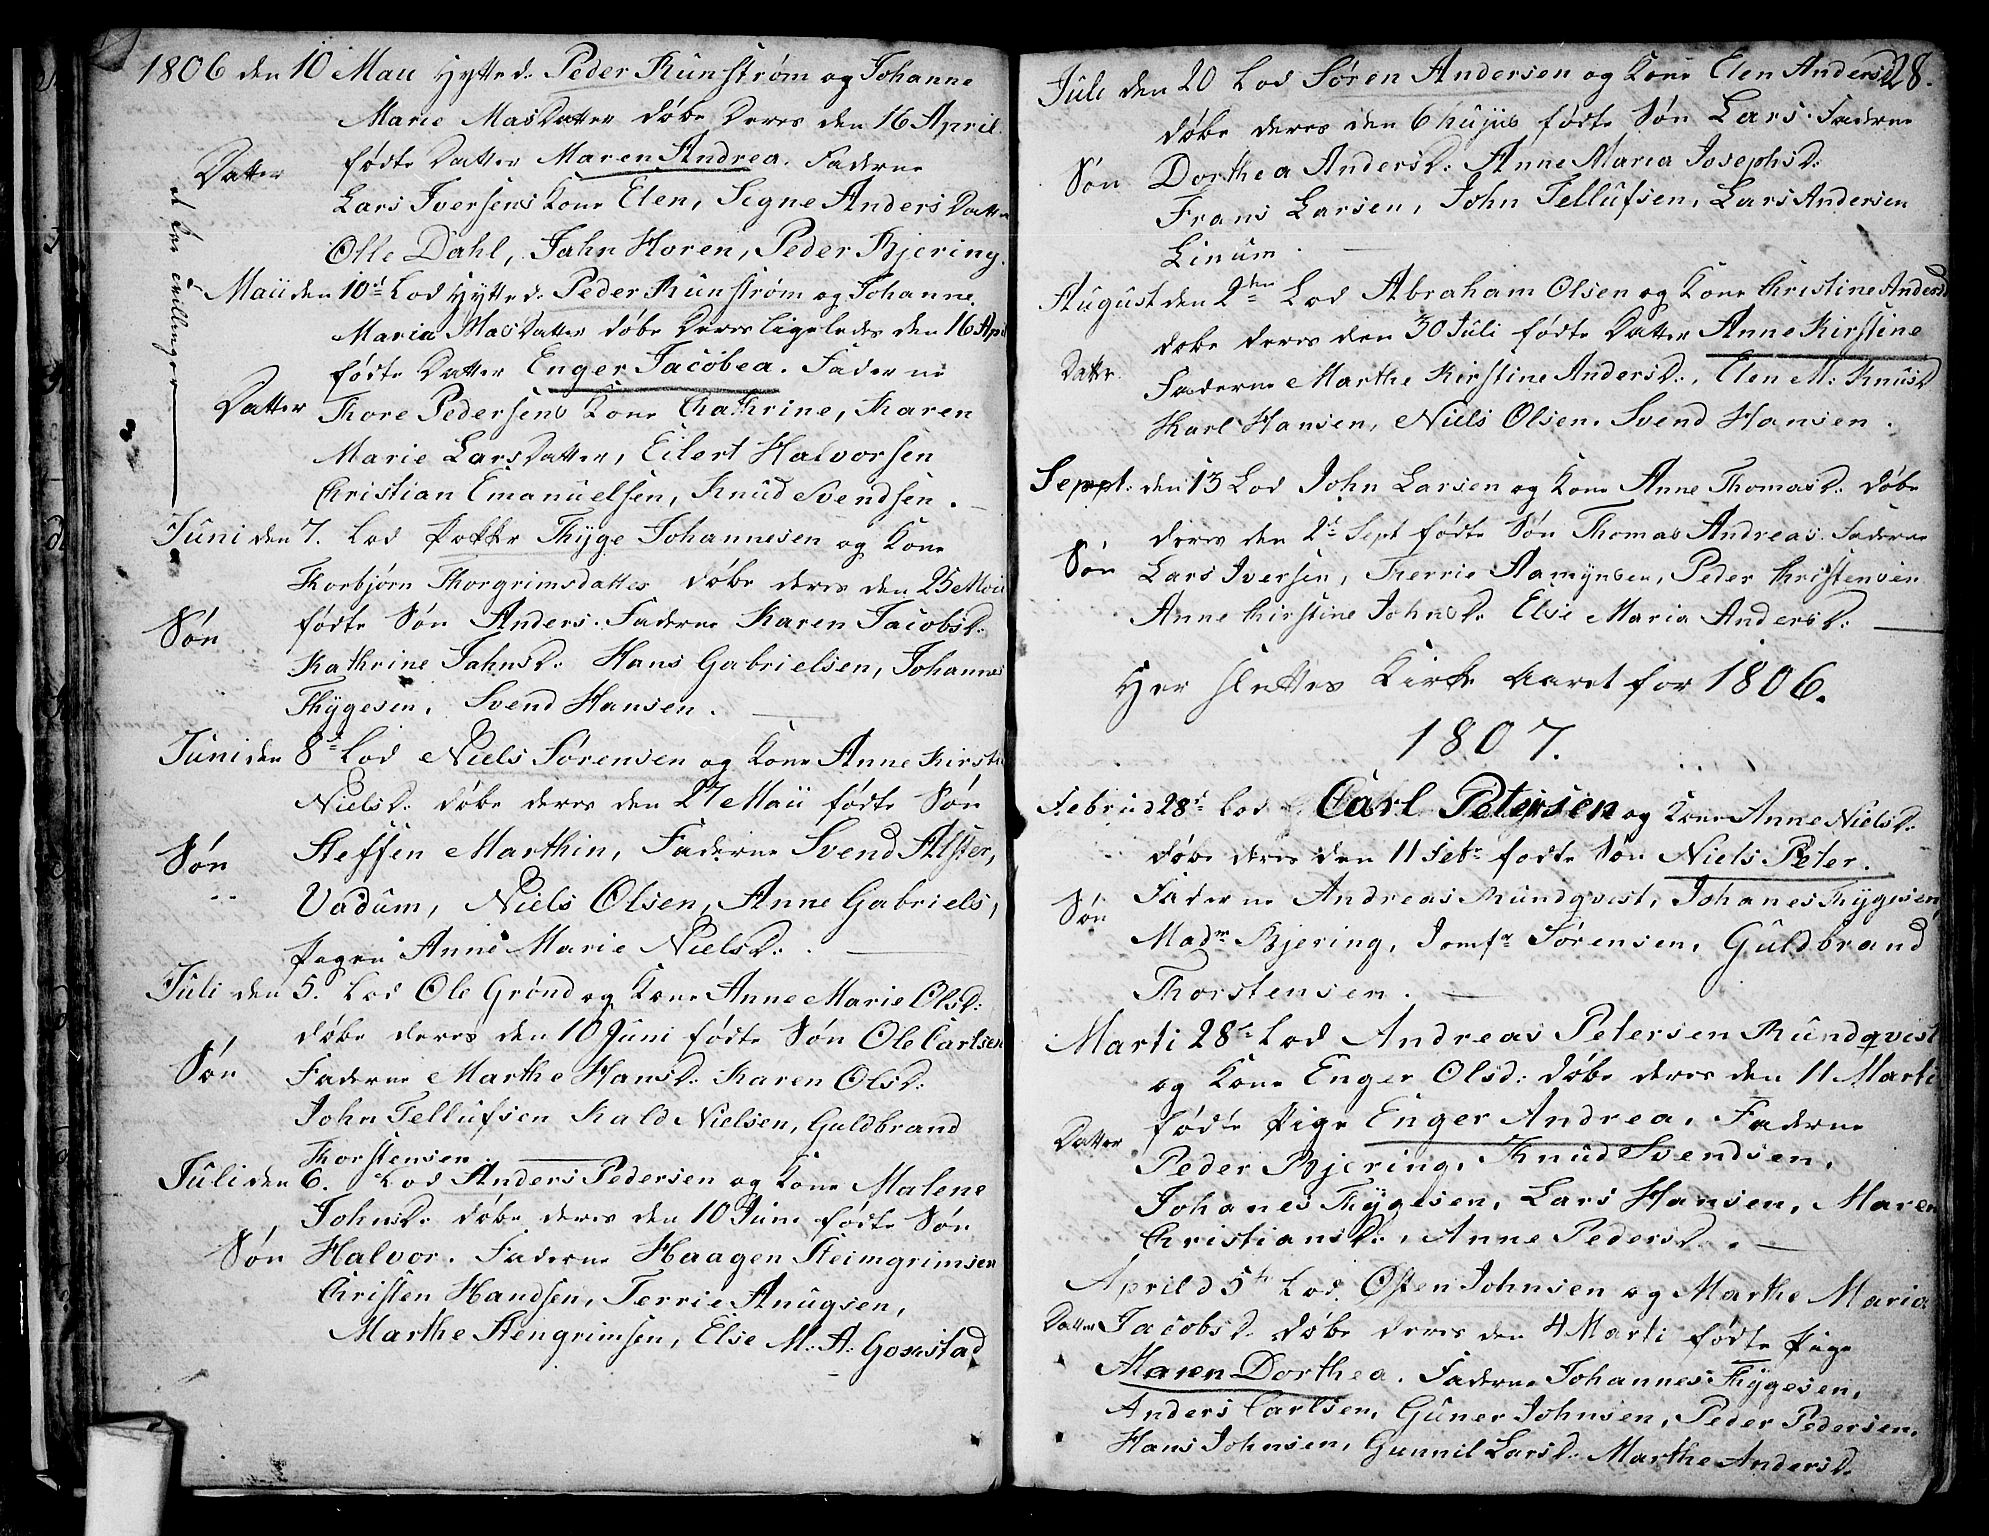 1806 den 10 Maii Hytted. Peder Runström og Johanne
Marie MasDatter døbe Deres den 16 April
Datter
fødte Datter Maren Andrea. Faderne
Lars Iversens Kone Elen, Segne Anders Datter
Olle Dahl, Jahn Horen, Peder Bjering.
et Par Tvillinger
Maii den 10d Lod Hytted. Peder Runström og Johanne
Maria MasDatter døbe Deres ligeledes den 16 April
fødte Datter Enger Jacobea. Faderne
Datter
Tore Pedersens Kone Cathrine, Karen
Marie LarsDatter, Eilert Halvorsen
Christian Emanuelsen, Knud Svendsen.
Juni den 7. Lod Thyge Johannesen og Kone
Torbjörn Thorgrimsdatter døbe deres den 25 Maii
Søn
fødte Søn Anders. Faderne Karen JacobsD:
Kathrine JahnsD: Hans Gabrielsen, Johannes
Thygesen, Svend Hansen.
Juni den 8d Lod Niels Sørensen og Kone Anne Kirsti
NielsD: døbe deres den 27 Maii fødte Søn
Søn
Steffen Marthin, Faderne Svend Alster,
Vadum, Niels Olsen, Anne Gabriels,
Pagen Anne Marie NielsD:
Juli den 5. Lod Ole Grønd og Kone Anne Marie OlsD:
døbe deres den 10 Juni fødte Søn Ole Carlsen
Søn
Faderne Marthe HansD: Karen OlsD:
John Tellufsen Kald Nielsen, Guldbrand
Torstensen.
Juli den 6. Lod Anders Pedersen og Kone Malene
JohnsD: døbe deres den 10 Juni fødte Søn
Søn
Halvor. Faderne Haagen Steimgrimsen
Christen Handsen, Terrie Anugsen,
Marthe Stengrimsen, Else M: A: Gonstad
28.
Juli den 20 Lod Søren Andersen og Kone Elen AndersD
døbe deres den 6 hujus fødte Søn Lars. Faderne
Søn
Dorthea AndersD: Anne Maria JosephsD:
Frans Larsen, John Tellufsen, Lars Andersen
Linum.
August den 2den Lod Abraham Olsen og Kone Christine AndersD
døbe deres den 30 Juli fødte Datter Anne Kirstine
Datter
Faderne Marthe Kirstine AndersD:, Elen M: KnusD
Karl Hansen, Niels Olsen. Svend Hansen.
Sept: den 13 Lod John Larsen og Kone Anne ThomasD: døbe
deres den 2d Sept fødte Søn Thomas Andreas. Faderne
Søn
Lars Iversen, Terrie Aamynsen, Peder Christensen
Anne Kirstine JohnsD: Else Maria AndersD:
Her sluttes Kirke Aaret for 1806.
1807.
Februd 28d Lod Carl Petersen og Kone Anne NielsD:
døbe deres den 11 Febr fødte Søn Niels Peter.
Søn
Faderne Andreas Rundqvist, Johanes Thygesen,
Madm Bjering, Jomfr Sørensen, Guldbrand
Thorstensen.
Marti 28d Lod Andreas Petersen Rundqvist
og Kone Enger Olsd: døbe deres den 11 Marti
Datter
fødte Pige Enger Andrea, Faderne
Peder Bjering, Knud Svendsen,
Johanes Thygesen, Lars Hansen, Maren
ChristiansD:, Anne PedersD.
April d 5t Lod Osten Johnsen og Marthe Maria
Datter
JacobsD. døbe deres den 4 Marti fødte Pige
Maren Dorthea. Faderne Johannes Thygesen,
Anders Carlsen, Guner Johnsen, Peder Pedersen,
Hans Johnsen, Gunnil LarsD. Marthe AndersD.